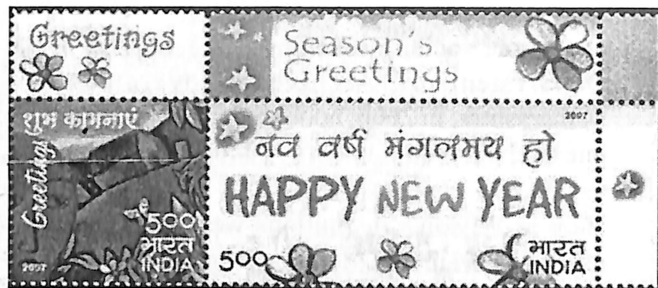 Greetings
Season's
Greetings
शुभ कामनाएं
Greetings
500
भारत
INDIA
2007
2007
नव वर्ष मंगलमय हो
HAPPY NEW YEAR
500
भारत
INDIA